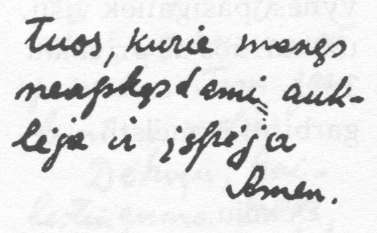 tuos, kurie manęs
neapkęsdami auk-
lėja ir įspėja
Amen.